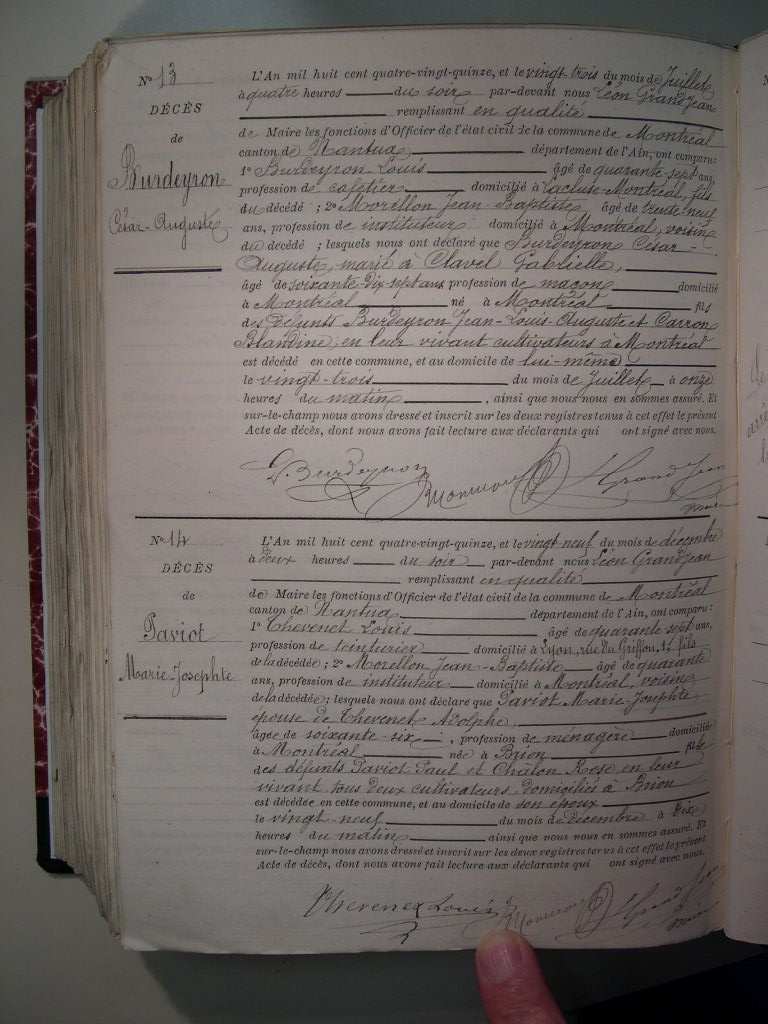 N° 13
DÉCÈS
de
Burdeyron
César-Auguste
L'An mil huit cent quatre-vingt-quinze, et le vingt trois du mois de Juillet
à quatre heures du soir par-devant nous Léon Grandjean
remplissant en qualité
de Maire les fonctions d'Officier de l'état civil de la commune de Montréal
canton de Nantua département de l'Ain, ont comparu:
1° Burdeyron Louis âgé de quarante sept ans,
profession de cafetier domicilié à Lacluse-Montréal, fils
du décédé ; 2° Morellon Jean-Baptiste âgé de trente neuf
ans, profession de instituteur domicilié à Montréal, voisin
du décédé ; lesquels nous ont déclaré que Burdeyron César-
Auguste, marié à Clavel Gabrielle,
âgé de soixante-dix sept ans profession de maçon domicilié
à Montréal né à Montréal fils
des défunts Burdeyron Jean-Louis-Auguste et Carron
Blandine en leur vivant cultivateurs à Montréal
est décédé en cette commune, et au domicile de lui-même
le vingt-trois du mois de Juillet à onze
heures du matin, ainsi que nous nous en sommes assuré. Et
sur-le-champ nous avons dressé et inscrit sur les deux registres tenus à cet effet le présent
Acte de décès, dont nous avons fait lecture aux déclarants qui ont signé avec nous.
L. Burdeyron Morellon L. Grandjean
maire
N° 14
DÉCÈS
de
Paviot
Marie-Josephte
L'An mil huit cent quatre-vingt-quinze, et le vingt neuf du mois de décembre
à deux heures du soir par-devant nous Léon Grandjean
remplissant en qualité
de Maire les fonctions d'Officier de l'état civil de la commune de Montréal
canton de Nantua département de l'Ain, ont comparu:
1° Chevenet Louis âgé de quarante sept ans,
profession de teinturier domicilié à Lyon, rue du Griffon, fils
de la décédée ; 2° Morellon Jean-Baptiste âgé de quarante
ans, profession de instituteur domicilié à Montréal, voisin
de la décédée ; lesquels nous ont déclaré que Paviot Marie-Josephte
épouse de Chevenet Adolphe
âgée de soixante-six, profession de ménagère domiciliée
à Montréal née à Brion fille
des défunts Paviot Paul et Châton Rose en leur
vivant tous deux cultivateurs domiciliés à Brion
est décédée en cette commune, et au domicile de son époux
le vingt-neuf du mois de Décembre à dix
heures du matin ainsi que nous nous en sommes assuré. Et
sur-le-champ nous avons dressé et inscrit sur les deux registres tenus à cet effet le présent
Acte de décès, dont nous avons fait lecture aux déclarants qui ont signé avec nous.
Chevenet Louis Morellon L. Grandjean
maire